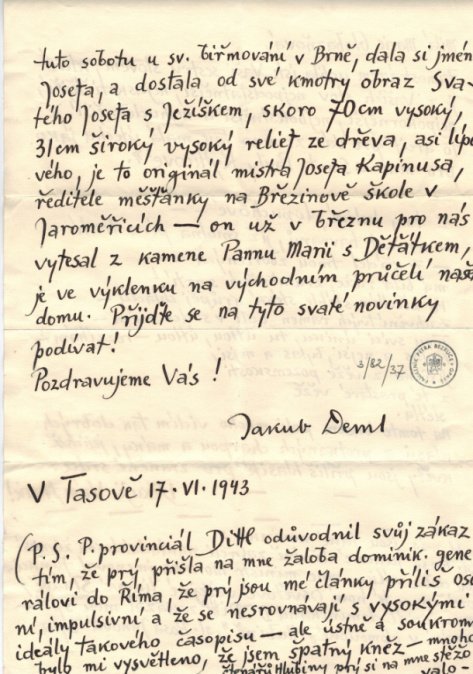 tuto sobotu u sv. biřmování v Brně, dala si jmén
Josefa, a dostala od své kmotry obraz Sva-
tého Josefa s Ježíškem, skoro 70cm vysoký,
31cm široký vysoký relief ze dřeva, asi lípo
vého, je to originál mistra Josefa Kapinusa,
ředitele měšťanky na Březinově škole v
Jaroměřicích — on už v březnu pro nás
vytesal z kamene Pannu Marii s Děťátkem,
je ve výklenku na východním průčelí naše
domu. Přijďte se na tyto svaté novinky
podívat!
Pozdravujeme Vás!
3/82/37
PAMÁTNÍK PETRA BEZRUČE · OPAVA
Jakub Deml
V Tasově 17.VI.1943
(P.S. P. provinciál Dittl odůvodnil svůj zákaz
tím, že prý přišla na mne žaloba dominik. gene
rálovi do Říma, že prý jsou mé články příliš oso
ní, impulsivní a že se nesrovnávají s vysokými
ideály takového časopisu — ale ústně a soukrom
bylo mi vysvětleno, že jsem špatný kněz — mnoho
čtenářů Hlubiny prý si na mne stěžo
valo-